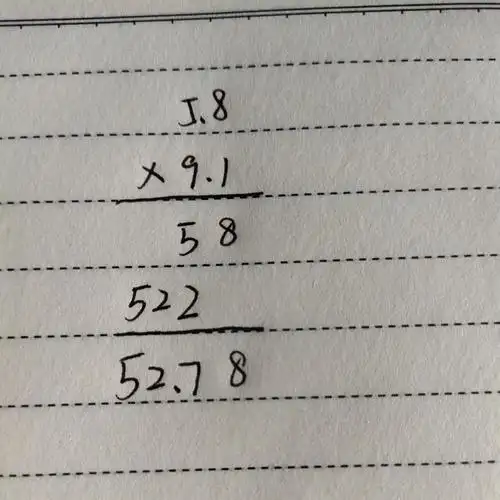 5.8
× 9.1
58
522
52.78